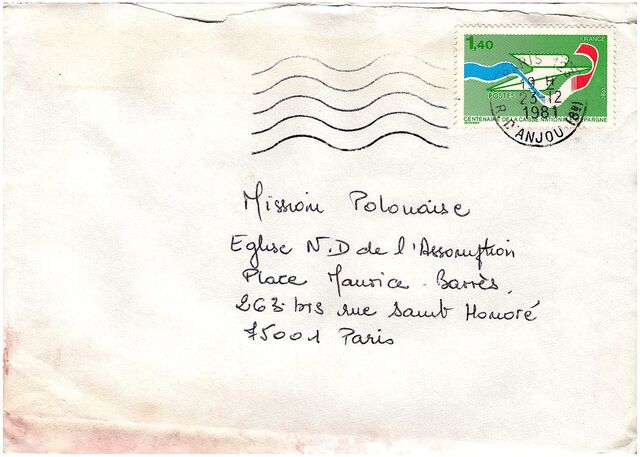 1,40
FRANCE
POSTES
CENTENAIRE DE LA CAISSE NATIONALE EPARGNE
19 H
23-12
1981
R. D'ANJOU (8e)
Mission Polonaise
Eglise N.D de l'Assomption
Place Maurice Barrès,
263 bis rue saint Honoré
75001 Paris